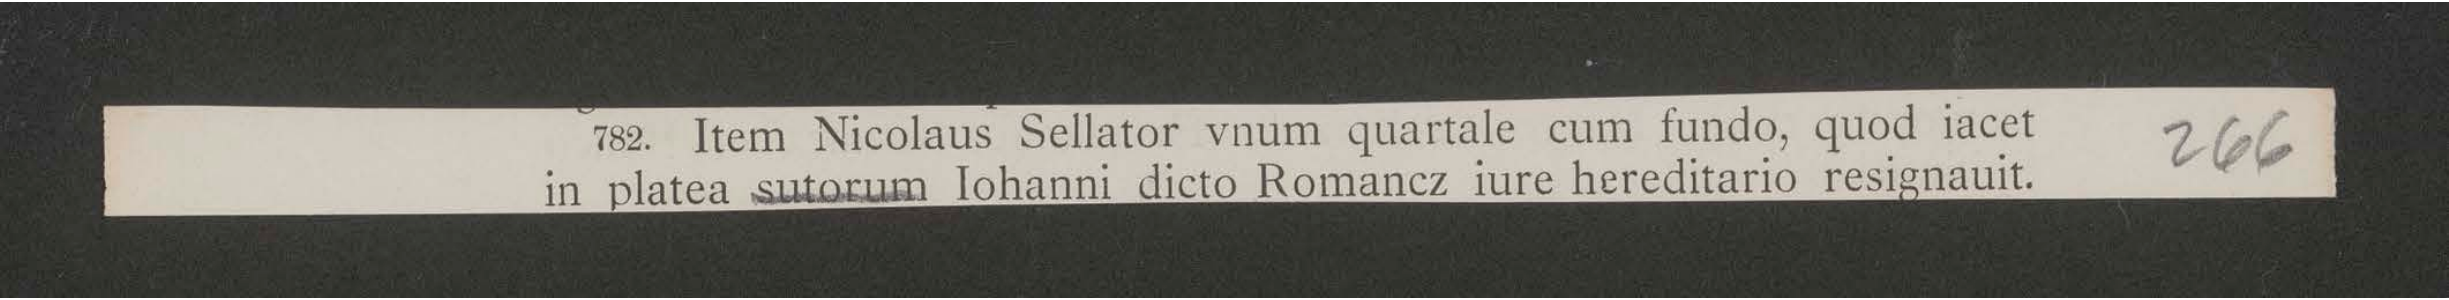 782. Item Nicolaus Sellator vnum quartale cum fundo, quod iacet 266
in platea sutorum Iohanni dicto Romancz iure hereditario resignauit.